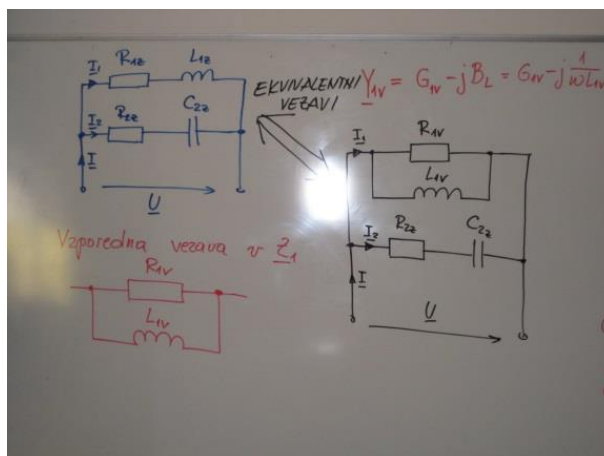 R1z L1z
I1
R2z C2z
I2
I
U
EKVIVALENTNI
VEZAVI
Y1v = G1v - jBL = G1v - j 1/ωL1v
R1v
I1
L1v
I2 R2z C2z
I
U
Vzporedna vezava v Z1
R1v
L1v